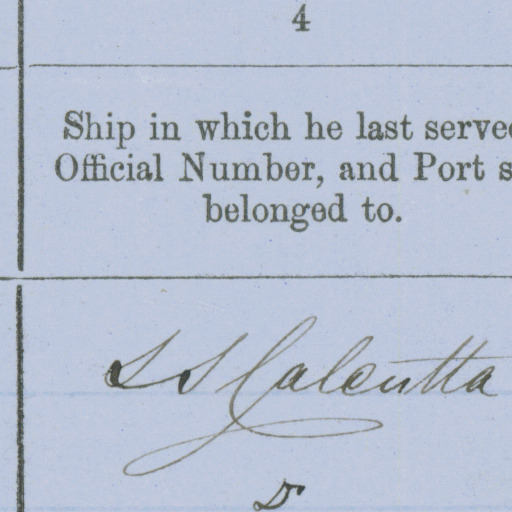 4
Ship in which he last serve
Official Number, and Port s
belonged to.
SS Calcutta
Do